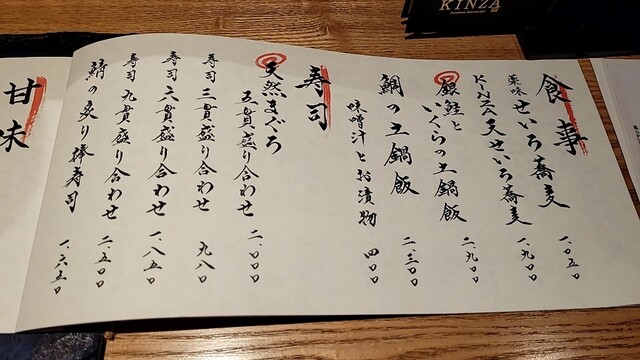 KINZA
食事
薬味 せいろ蕎麦 一、〇五〇
KINZA天せいろ蕎麦 一、九〇〇
銀鮭といくらの土鍋飯 二、九〇〇
鯛の土鍋飯 二、三〇〇
味噌汁とお漬物 四〇〇
寿司
天然まぐろ
五貫盛り合わせ 二、〇〇〇
寿司 三貫盛り合わせ 九八〇
寿司 六貫盛り合わせ 一、八五〇
寿司 九貫盛り合わせ 二、五〇〇
鯖の炙り棒寿司 一、六五〇
甘味